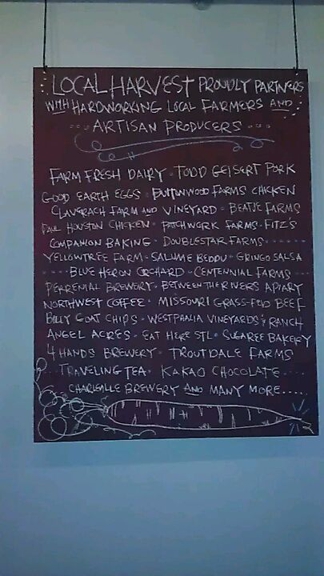 LOCAL HARVEST PROUDLY PARTNERS
WITH HARDWORKING LOCAL FARMERS AND
ARTISAN PRODUCERS
FARM FRESH DAIRY - TODD GEISERT PORK
GOOD EARTH EGGS - BUTTONWOOD FARMS CHICKEN
CLAVERACH FARM AND VINEYARD - BEATJE FARMS
PAUL HOUSTON CHICKEN - PATCHWORK FARMS - FITZ'S
COMPANION BAKING - DOUBLESTAR FARMS
YELLOWTREE FARM - SALUME BEDDU - GRINGO SALSA
BLUE HERON ORCHARD - CENTENNIAL FARMS
PERENNIAL BREWERY - BETWEEN THE RIVERS APIARY
NORTHWEST COFFEE - MISSOURI GRASS-FED BEEF
BILLY GOAT CHIPS - WESTPHALIA VINEYARDS & RANCH
ANGEL ACRES - EAT HERE STL - SUGAREE BAKERY
4 HANDS BREWERY - TROUTDALE FARMS
TRAVELING TEA - KAKAO CHOCOLATE
CHARLEVILLE BREWERY AND MANY MORE.....